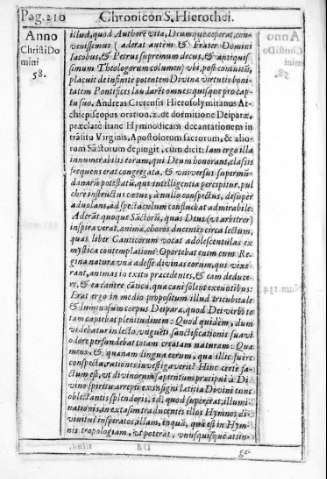 Pag. 210 Chronicon S. Hierothei.
Anno
Christi Do
mini
58.
illud, quod Authore vita, Deumque operat, con-
venissemus (aderat autem & Frater Domini
Iacobus, & Petrus supremum decus, & antiquis-
simum Theologorum columen) visi, post comitiũ,
placuit de infinite potentem Divinæ virtutis boni-
tatem Pontifices laudaret omnes; quisque pro cap-
tu suo. Andreas Cretensis Hierosolymitanus Ar-
chiepiscopus oration. 2. de dormitione Deiparæ,
præclarè hanc Hymnodicam decantationem in
transitu Virginis, Apostolorum factorum, & alio-
rum Sãctorum depingit, cum dicit: Iam ergo illa
innumerabilis terram, qui Deum honorant, classis
frequens erat congregata, & universus supermũ-
danarũ potestatũ, quæ intelligentia percipitur, pul
chrè instructus cœtus, è nullo conspectus, desuper
advolans, ad spectaculum confluebat admirabile.
Aderãt quoque Sãctorũ, quas Deus (vt arbitror)
inspiraverat, animæ, choros ducentes circa lectum,
quas liber Canticorum vocat adolescentulas ex
mystica contemplatione. Oportebat enim cum Re-
gina natura vnà adesse divinas eorum, qui vixe-
rant, animas in exitu præcedentes, & eam deduce-
re, & ea canere cãtica, quæ cani solent exeuntibus:
Erat ergo in medio propositum illud tricubitale
& luminosum corpus Deiparæ, quod Dei verbi to
tam capiebat plenitudinem: Quod quidem, dum
videbatur in lecto, vigẽti sanctificationis suavi
odore perfundebat totam creatam naturam: Quæ
mens, & quænam lingua eorum, quæ illic fuere
conspecta, rationes investigaverit? Hinc certè fa-
ctum est, vt divinorum sapientum principali à Di
vino spiritu arrepti ex insigni lætitia Divini tunc
oblectantis splendoris, id, quod superetat illumi-
nationis, in extasim traducentis illos Hymnos di-
vinitus inspiratos, allam, inquã, quæ est in Hym-
nis tropologiam, vt poterat, vnusquisque attin-